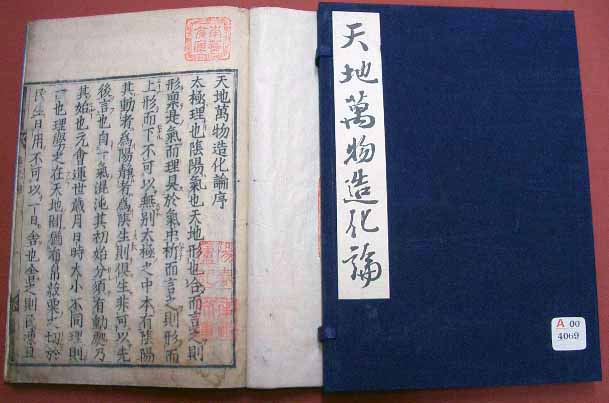 天地萬物造化論
A 00
4069
天地萬物造化論序
太極理也陰陽氣也天地形也合而言之則
形稟是氣而理具於氣中析而言之則形而
上形而下不可以無別太極之中本有陰陽
其動者為陽靜者為陰生則俱生非可以先
後言也自一氣混沌其初始分須有動處乃
其始也元會運世歲月日時大小不同理則
一也理學之在天地間猶布帛菽粟之切於
民生日用不可以一日舍也舍之則